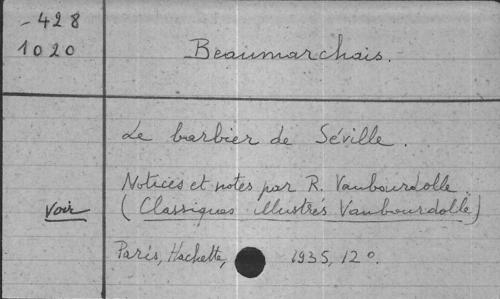 -428
1020
Beaumarchais.
Le barbier de Séville.
Notices et notes par R. Vaubourdolle.
Voir
(Classiques illustrés Vaubourdolle)
Paris, Hachette, 1935, 12º.